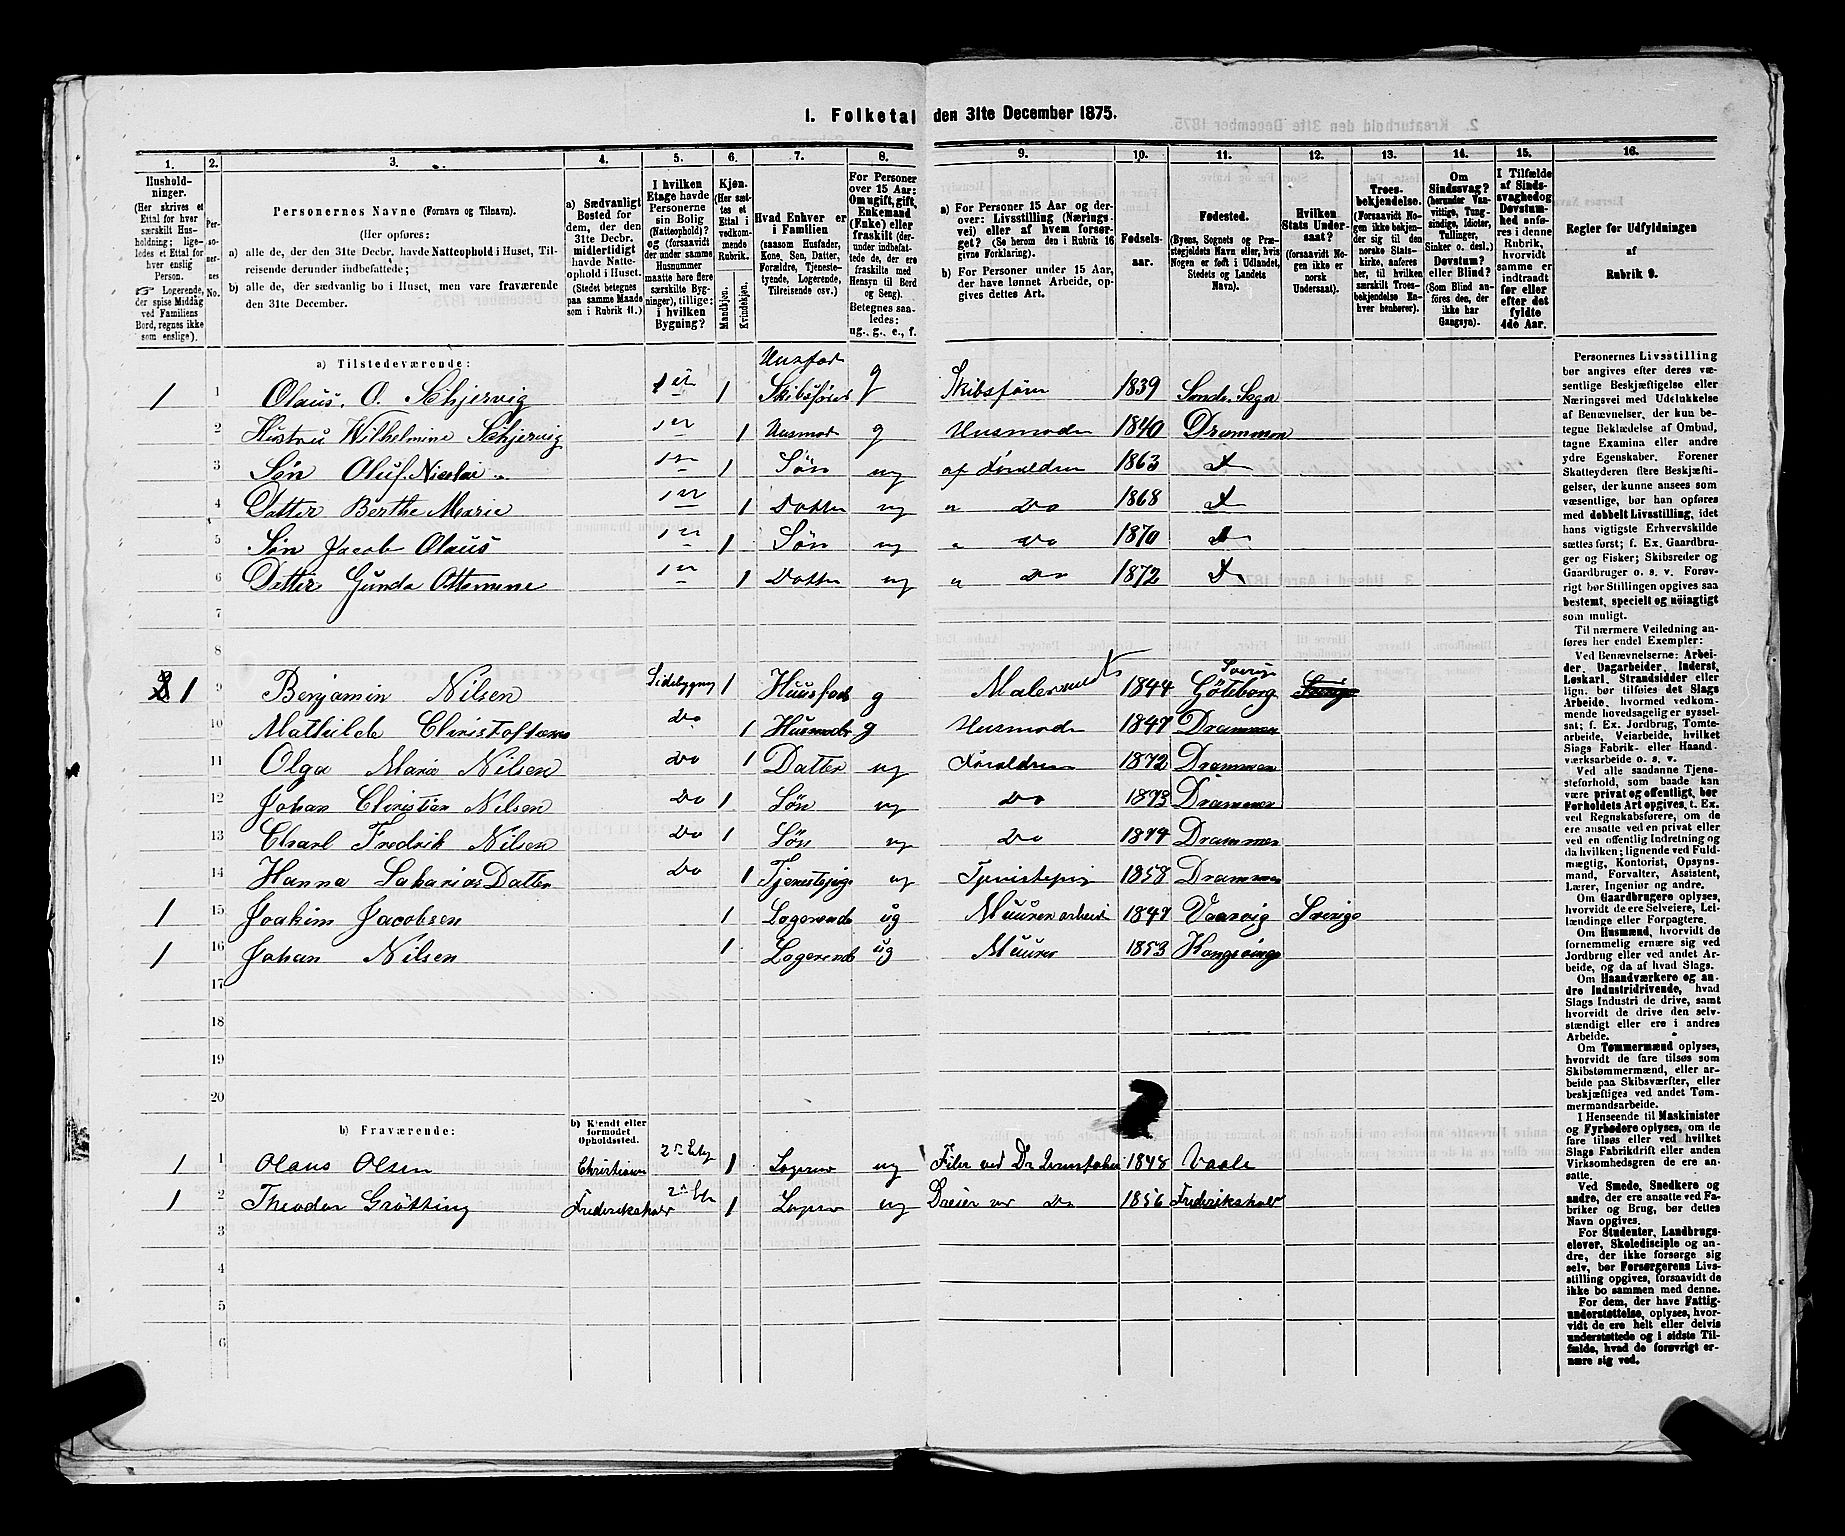 1. Folketal den 31te December 1875.
1. 2. 3. 4. 5. 6. 7. 8. 9. 10. 11. 12. 13. 14. 15. 16.
Husholdninger. (Her skrives et Ettal for hver særskilt Husholdning; ligeledes et Ettal for hver enslig Person. Logerende, der spise Middag ved Familiens Bord, regnes ikke som enslige).
Personernes No.
Personernes Navne (Fornavn og Tilnavn).
(Her opføres:
a) alle de, der den 31te Decbr. havde Natteophold i Huset, Tilreisende derunder indbefattede;
b) alle de, der sædvanlig bo i Huset, men vare fraværende den 31te December.
a) Sædvanligt Bosted for dem, der den 31te Decbr. midlertidigt havde Natteophold i Huset. (Stedet betegnes paa samme Maade som i Rubrik 11.)
I hvilken Etage havde Personerne sin Bolig (Natteophold)? og (forsaavidt der under samme Husnummer maatte høre flere særskilte Bygninger), tillige: i hvilken Bygning?
Kjøn. (Her sættes et Ettal i vedkommende Rubrik.
Mandkjøn. Kvindekjøn.
Hvad Enhver er i Familien (saasom Husfader, Kone, Søn, Datter, Forældre, Tjenestetyende, Logerende, Tilreisende osv.)
For Personer over 15 Aar: Om ugift, gift, Enkemand (Enke) eller fraskilt (derunder indbefattede de, der ere fraskilte med Hensyn til Bord og Seng). Betegnes saaledes: ug., g., e., f.
a) For Personer 15 Aar og derover: Livsstilling (Næringsvei) eller af hvem forsørget? (Se herom den i Rubrik 16 givne Forklaring).
b) For Personer under 15 Aar, der have lønnet Arbeide, opgives dettes Art.
Fødselsaar.
Fødested. (Byens, Sognets og Præstegjeldets Navn, eller, hvis Nogen er født i Udlandet, Stedets og Landets Navn).
Hvilken Stats Undersaat? (forsaavidt Nogen ikke er norsk Undersaat).
Troesbekjendelse. (Forsaavidt Nogen ikke bekjender sig til den norske Statskirke, anføres her, til hvilken særskilt Troesbekjendelse Enhver henhører).
Om Sindssvag? (herunder Vanvittige, Tungsindige, Idioter, Tullinger, Sinker o. desl.) Døvstum? eller Blind? (Som Blind anføres den, der ikke har Gangsyn).
I Tilfælde af Sindssvaghed og Døvstumhed anføres i denne Rubrik, hvorvidt samme er indtraadt før eller efter det fyldte 4de Aar.
Regler for Udfyldningen af Rubrik 9.
a) Tilstedeværende:
1 1 Olaus. O. Schjervig 1 1 Husfad Skibsfører g Skibsfører 1839 Sogn
2 Hustru Wilhelmine Schjervig 1 Husmod g Husmoder 1840 Drammen
3 Søn Oluf Nicolai 1 Søn ug af Forældre 1863
4 Datter Berthe Marie 1 Datter ug " Do 1868
5 Søn Jacob Olaus 1 Søn ug " Do 1870
6 Datter Gunda Ottomine 1 Datter ug " Do 1872
7
8
1 9 Benjamin Nilsen Sidebygng 1 Huusfader g Malersvend 1844 Sverige Göteborg Sverige
10 Mathilde Christofersen Do 1 Husmoder g Husmoder 1847 Drammen
11 Olga Marie Nilsen Do 1 Datter ug Forældre 1872 Drammen
12 Johan Christian Nilsen Do 1 Søn ug Do 1873 Drammen
13 Charl Fredrik Nilsen Do 1 Søn ug Do 1874 Drammen
14 Hanna SakariasDatter Do 1 Tjenestepige ug Tjenistepig 1858 Drammen
1 15 Joakim Jacobsen 1 Logerende ug Muurerarbeid 1847 Sverige
1 16 Johan Nilsen 1 Logerende ug Muurer 1853 Kongsvinge
17
18
19
20
b) Fraværende:
b) Kjendt eller formodet Opholdssted.
1 1 Olaus Olsen Christiania 2 Etg 1 Logerer ug Filer ved 1848 Vaale
1 2 Theodor Grøtting Frederikshald 2 Etg 1 Logerer ug Dreier ved Do 1856 Frederikshald
3
4
5
6
Personernes Livsstilling bør angives efter deres væsentlige Beskjæftigelse eller Næringsvei med Udelukkelse af Benævnelser, der kun betegne Beklædelse af Ombud, tagne Examina eller andre ydre Egenskaber. Forener Skatteyderen flere Beskjæftigelser, der kunne ansees som væsentlige, bør han opføres med dobbelt Livsstilling, idet hans vigtigste Erhvervskilde sættes først; f. Ex. Gaardbruger og Fisker; Skibsreder og Gaardbruger o. s. v. Forøvrigt bør Stillingen opgives saa bestemt, specielt og nøiagtigt som muligt.
Til nærmere Veiledning anføres her endel Exempler:
Ved Benævnelserne: Arbeider, Dagarbeider, Inderst, Løskarl, Strandsidder eller lign. bør tilføies det Slags Arbeide, hvormed vedkommende hovedsagelig er sysselsat; f. Ex. Jordbrug, Tomtearbeide, Veiarbeide, hvilket Slags Fabrik- eller Haandværksarbeide o. s. v.
Ved alle saadanne Tjenesteforhold, som baade kan være privat og offentligt, bør Forholdets Art opgives, t. Ex. ved Regnskabsførere, om de ere ansatte ved en privat eller ved en offentlig Indretning og da hvilken; lignende ved Fuldmægtig, Kontorist, Opsynsmand, Forvalter, Assistent, Lærer, Ingeniør og andre.
Om Gaardbrugere oplyses, hvorvidt de ere Selveiere, Leilændinge eller Forpagtere.
Om Husmænd, hvorvidt de fornemmelig ernære sig ved Jordbrug eller ved andet Arbeide, og da af hvad Slags.
Om Haandværkere og andre Industridrivende, hvad Slags Industri de drive, samt hvorvidt de drive den selvstændigt eller ere i andres Arbeide.
Om Tømmermænd oplyses, hvorvidt de fare tilsøs som Skibstømmermænd, eller arbeide paa Skibsværfter, eller beskjæftiges ved andet Tømmermandsarbeide.
I Henseende til Maskinister og Fyrbødere oplyses, om de fare tilsøs eller ved hvilket Slags Fabrikdrift eller anden Virksomhedsgren de ere ansatte.
Ved Smede, Snedkere og andre, der ere ansatte ved Fabriker og Brug, bør dettes Navn opgives.
For Studenter, Landbrugselever, Skoledisciple og andre, der ikke forsørge sig selv, bør Forsørgerens Livsstilling opgives, forsaavidt de ikke bo sammen med denne.
For dem, der have Fattigunderstøttelse, oplyses, hvorvidt de ere helt eller delvis understøttede og i sidste Tilfælde, hvad de forøvrigt ernære sig ved.